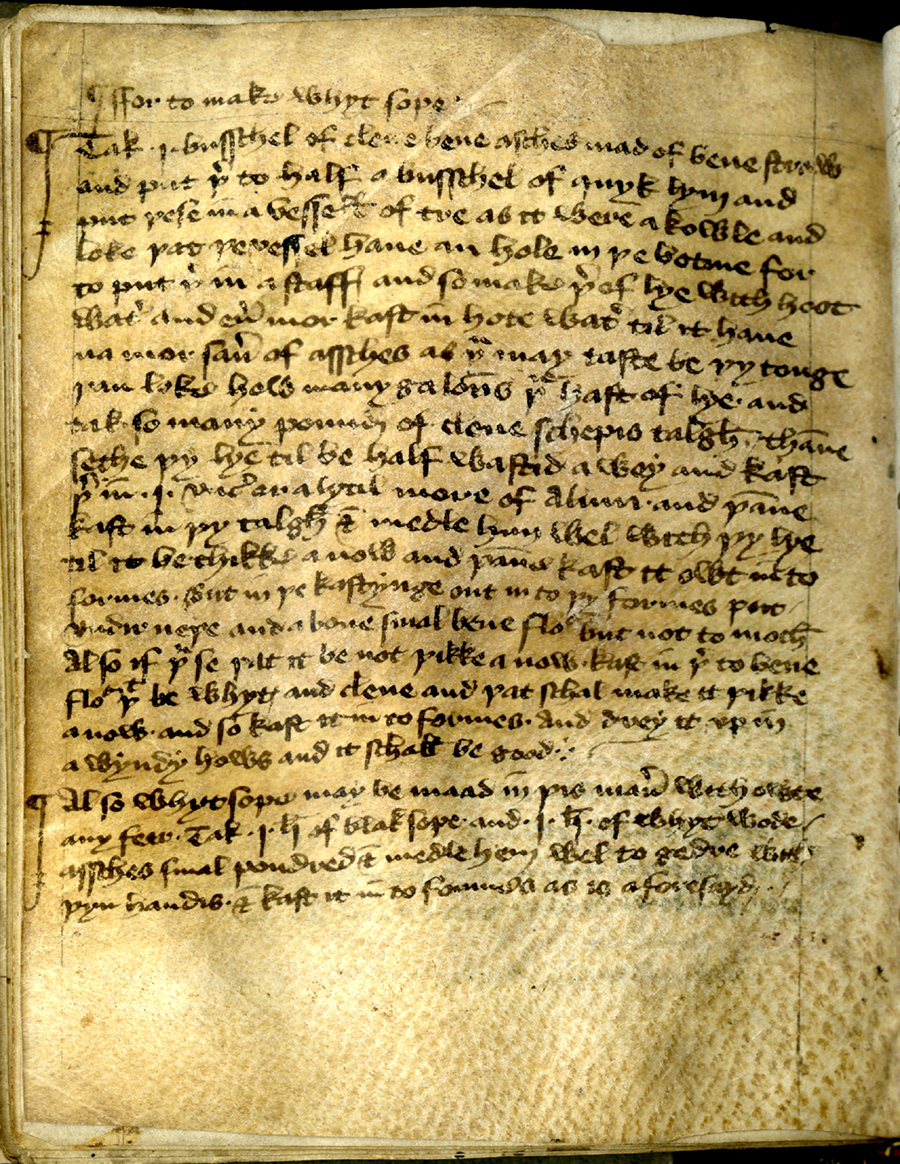 ¶ ffor to make whyt sope
¶ Tak .j. busschel of clene bene asches mad of bene straw
and put þ̵ to half a busschel of quyk lym and
put þese in a vessell of tre as it were a kowle and
loke þat þe vessel haue an hole in þe botme for
to put þ̵ in a staff and so make þ̵of lye with hoot
wat̵ and eu̵ mor kast in hote wat̵ til it haue
na mor sau̵ of assches as þu may taste be þy tonge
þan loke how many galōns þu hast of lye. and
tak so many pound of clene schepis talgh. thāne
sethe þy lye til be half wastid a wey and kast
þ̵ in .j. vnc̵ or a lytil more of Alum. and þāne
kast in þy talgh & medle hym wel with þy lye
til it be thikke a now and þāne kast it owt in to
formes. but in þe kastynge out in to þy formes put
vndir neþe and a boue smal bene flour but not to moch
Also if þu se þat it be not þikke a now. kast in þ̵ to bene
flour þt be whyt and clene and þat schal make it þikke
a now. and so kast it in to formes. And drey it vp in
a wyndy hows and it schall be good.
¶ Also whyt sope may be maad in þis man̵ with owte
any feer. Tak .j. lī of blak sope. and .j. lī. of whyt wode
assches smal poudred & medle hem wel to gedre with
þyn handis. & kast it in to formes as is a foresayd.